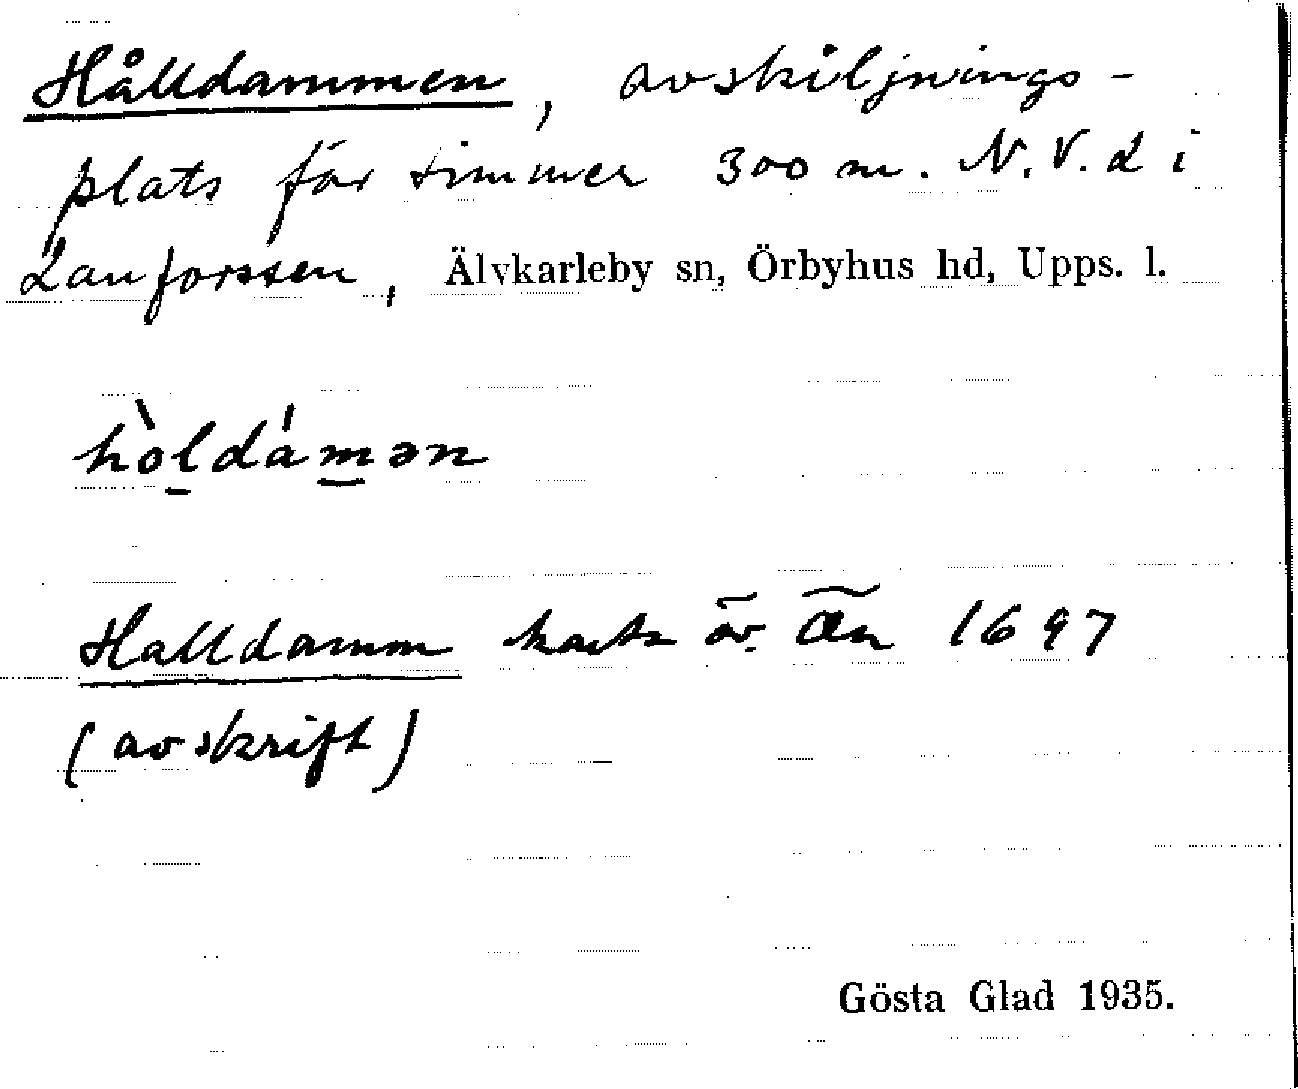 Hålldammen, avskiljnings-
plats för timmer 300 m. N.V. L i
Lanforssen, Älvkarleby sn, Örbyhus hd, Upps. l.
hòldámən
Halldamm karta öv. Än 1697
(avskrift)
Gösta Glad 1935.